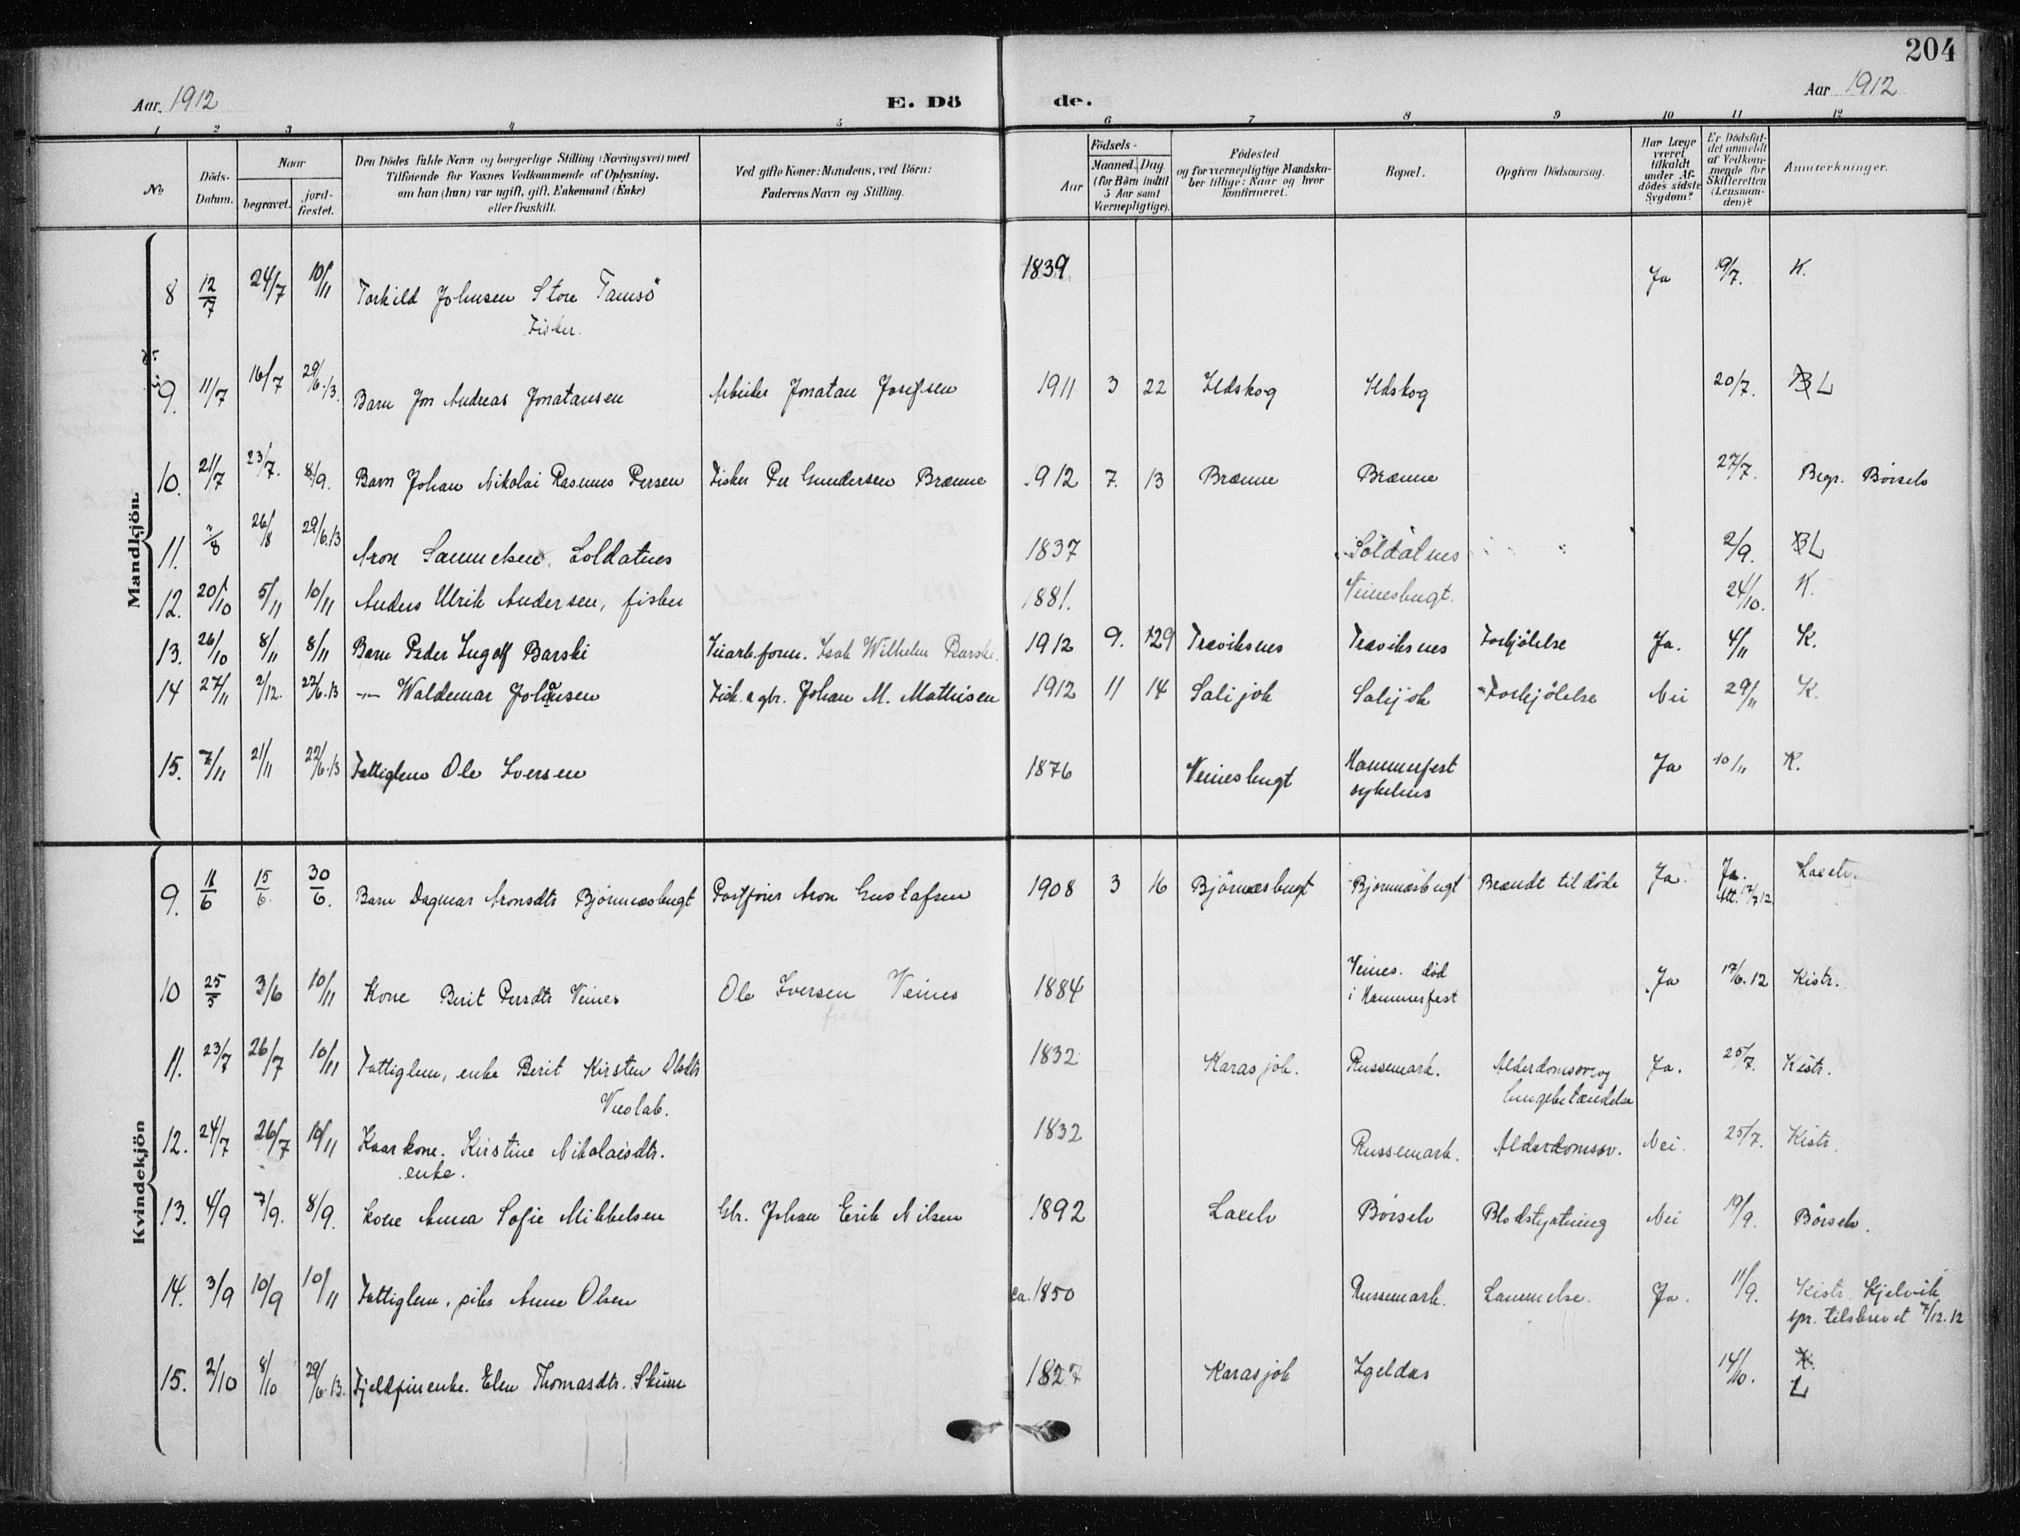 204
Aar 1912
E. Dö
de.
Aar 1912
1 2 3 4 5 6 7 8 9 10 11 12
No
Döds-Datum.
Naar
begravet.
jord-fæstet.
Den Dödes fulde Navn og borgerlige Stilling (Næringsvei) med
Tilföiende for Voxnes Vedkommende af Oplysning,
om han (hun) var ugift, gift, Enkemand (Enke)
eller fraskilt.
Ved gifte Koner: Mandens, ved Börn:
Faderens Navn og Stilling.
Födsels-
Aar
Maaned. Dag
(for Börn indtil
5 Aar samt
Værnepligtige).
Födested
og for værnepligtige Mandska-
ber tillige: Naar og hvor
konfirmeret.
Bopæl.
Opgiven Dödsaarsag.
Har Læge
været
tilkaldt
under Af-
dödes sidste
Sygdom?
Er Dödsfal-
det anmeldt
af Vedkom-
mende for
Skifteretten
(Lensman-
den)?
Anmærkninger.
Mandkjön.
8 12/7 24/7 10/11 Torkild Johnsen Store Tamsö 1839 Ja 19/7. K.
Fisker.
9. 11/7 16/7 29/6.13. Barn Jon Andreas Jonatansen Arbeider Jonatan Josefsen 1911 3 22 Ildskog Ildskog 20/7. B L
10. 21/7 23/7. 8/9. Barn Johan Nikolai Rasmus Persen Fisker Per Gundersen Brænne 912 7. 13 Brænne Brænne 27/7. Begr. Börselv
11. 7/8 26/8 29/6.13 Aron Samuelsen, Soldatnes 1837 Soldatnes 2/9. B L
12. 20/10 5/11 10/11 Anders Ulrik Andersen, fisker 1881. Veinesbugt. 24/10. K.
13. 26/10 8/11 8/11 Barn Peder Ingolf Barski Veiarb.form. Isak Wilhelm Barski. 1912 9. 29 Træviksnes Træviksnes Forkjölelse Ja. 4/11 K.
14 27/11 2/12. 22/6.13 — Waldemar Johansen Fisk. & gbr. Johan M. Mathisen 1912 11 14 Salijok Salijok Forkjölelse Nei 29/11 K.
15. 7/11 21/11 22/6.13 Fattiglem Ole Iversen 1876 Veinesbugt Hammerfest Ja 10/11 K.
sykehus
Kvindekjön
9. 11/6 15/6. 30/6. Barn Dagmar Aronsdtr Björnæsbugt Postförer Aron Gustafsen 1908 3 16 Björnæsbugt Björnnæsbugt Brændt tildöde Ja. Ja. Laxelv.
Att. 17/7 12.
10 25/5 3/6 10/11 Kone Berit Persdtr Veines Ole Iversen Veines 1884 Veines. död Ja 17/6.12 Kistr.
fisker i Hammerfest
11. 23/7 26/7 10/11 Fattiglem, enke Berit Kirsten Olsdtr 1832 Karasjok. Russemark. Alderdomssv. og Ja. 25/7. Kistr.
lungebetændelse
12. 24/7 26/7 10/11 Kaarkone. Kirstine Nikolaisdtr. 1832 Russemark. Alderdomssv. Nei. 25/7. Kistr.
enke.
13. 4/9 7/9. 8/9. Kone Anna Sofie Mikkelsen Gbr. Johan Erik Nilsen 1892 Laxelv Börselv Blodstyrtning Nei 19/9. Börselv.
14. 3/9 10/9 10/11 Fattiglem, pike Anne Olsen ca. 1850 Russemark. Lammelse. Ja. 11/9. Kistr. Kjelvik
spr. tilskrevet 7/12.12
15. 2/10 8/10 29/6.13. Fjeldfinenke. Elen Thomasdtr. Skum 1827 Karasjok Igeldas 14/10. K.
L